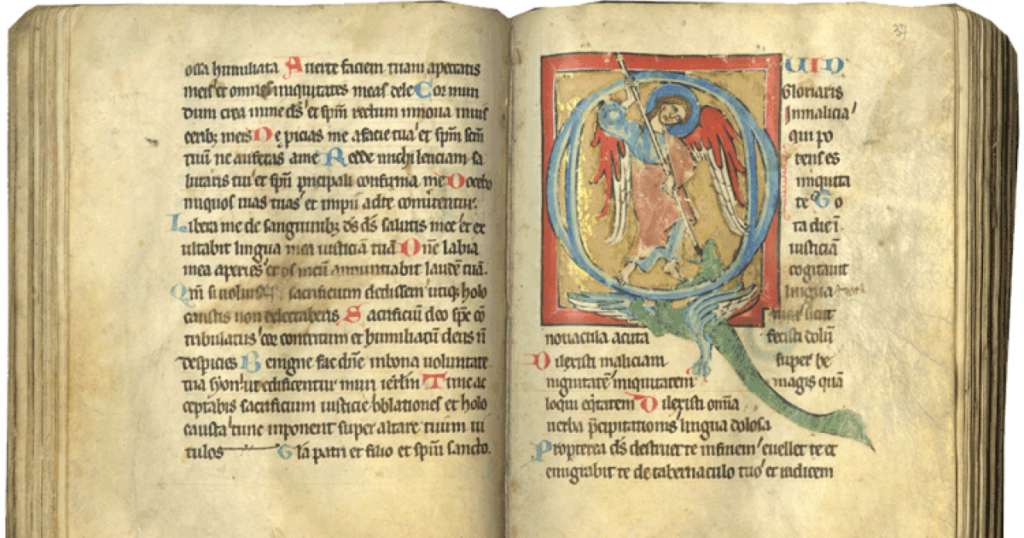 ossa humiliata Auerte faciem tuam apeccatis
meis et omnes iniquitates meas dele Cor mun
dum crea inme ds et spm rectum innoua inuis
ceribz meis Ne proicias me afacie tua et spm scm
tuum ne auferas ame Redde michi leticiam sa
lutaris tui et spu principali confirma me Docebo
iniquos uias tuas et impii adte conuertentur.
Libera me de sanguinibz ds ds salutis mee et ex
ultabit lingua mea iusticiam tuam Dne labia
mea aperies et os meum annunciabit laudem tuam.
Qm si uoluisses sacrificium dedissem utiqz holo
caustis non delectaberis Sacrificium deo sps co
tribulatus cor contritum et humiliatum deus n
despicies Benigne fac dne inbona uoluntate
tua syon ut edificentur muri ierlm Tunc ac
ceptabis sacrificium iusticie oblationes et holo
causta tunc imponent super altare tuum ui
tulos Gla patri et filio et spui sancto.
37
QUID
Gloriaris
Inmalicia
qui po
tens es
iniquita
te To
ta die i
iusticiam
cogitauit
lingua
tua sicut
nouacula acuta fecisti dolum
Dilexisti maliciam super be
nignitatem iniquitatem magis quam
loqui eqtatem Dilexisti omia
uerba precipitationis lingua dolosa
Propterea ds destruet te infinem euellet te et
emigrabit te de tabernaculo tuo et radicem